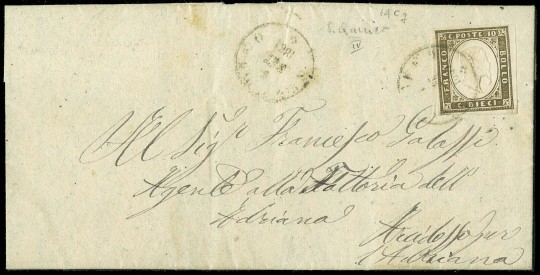 14C2
C. POSTE 10
FRANCO
BOLLO
C. DIECI
Al Sig.r Francesco Galassi
Agente alla Fattoria dell
Adriana
per
Adriana